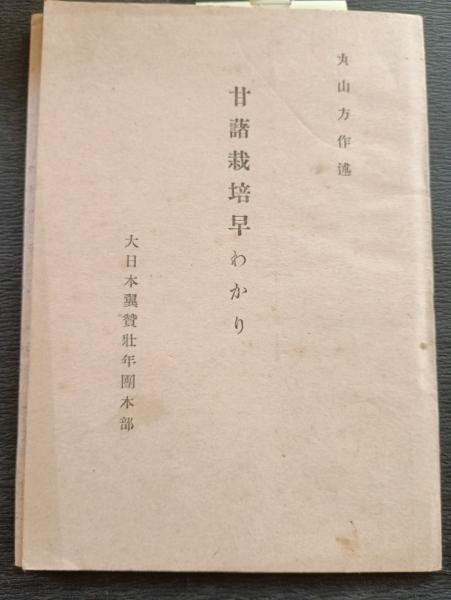 丸山方作述
甘藷栽培早わかり
大日本翼贊壯年團本部